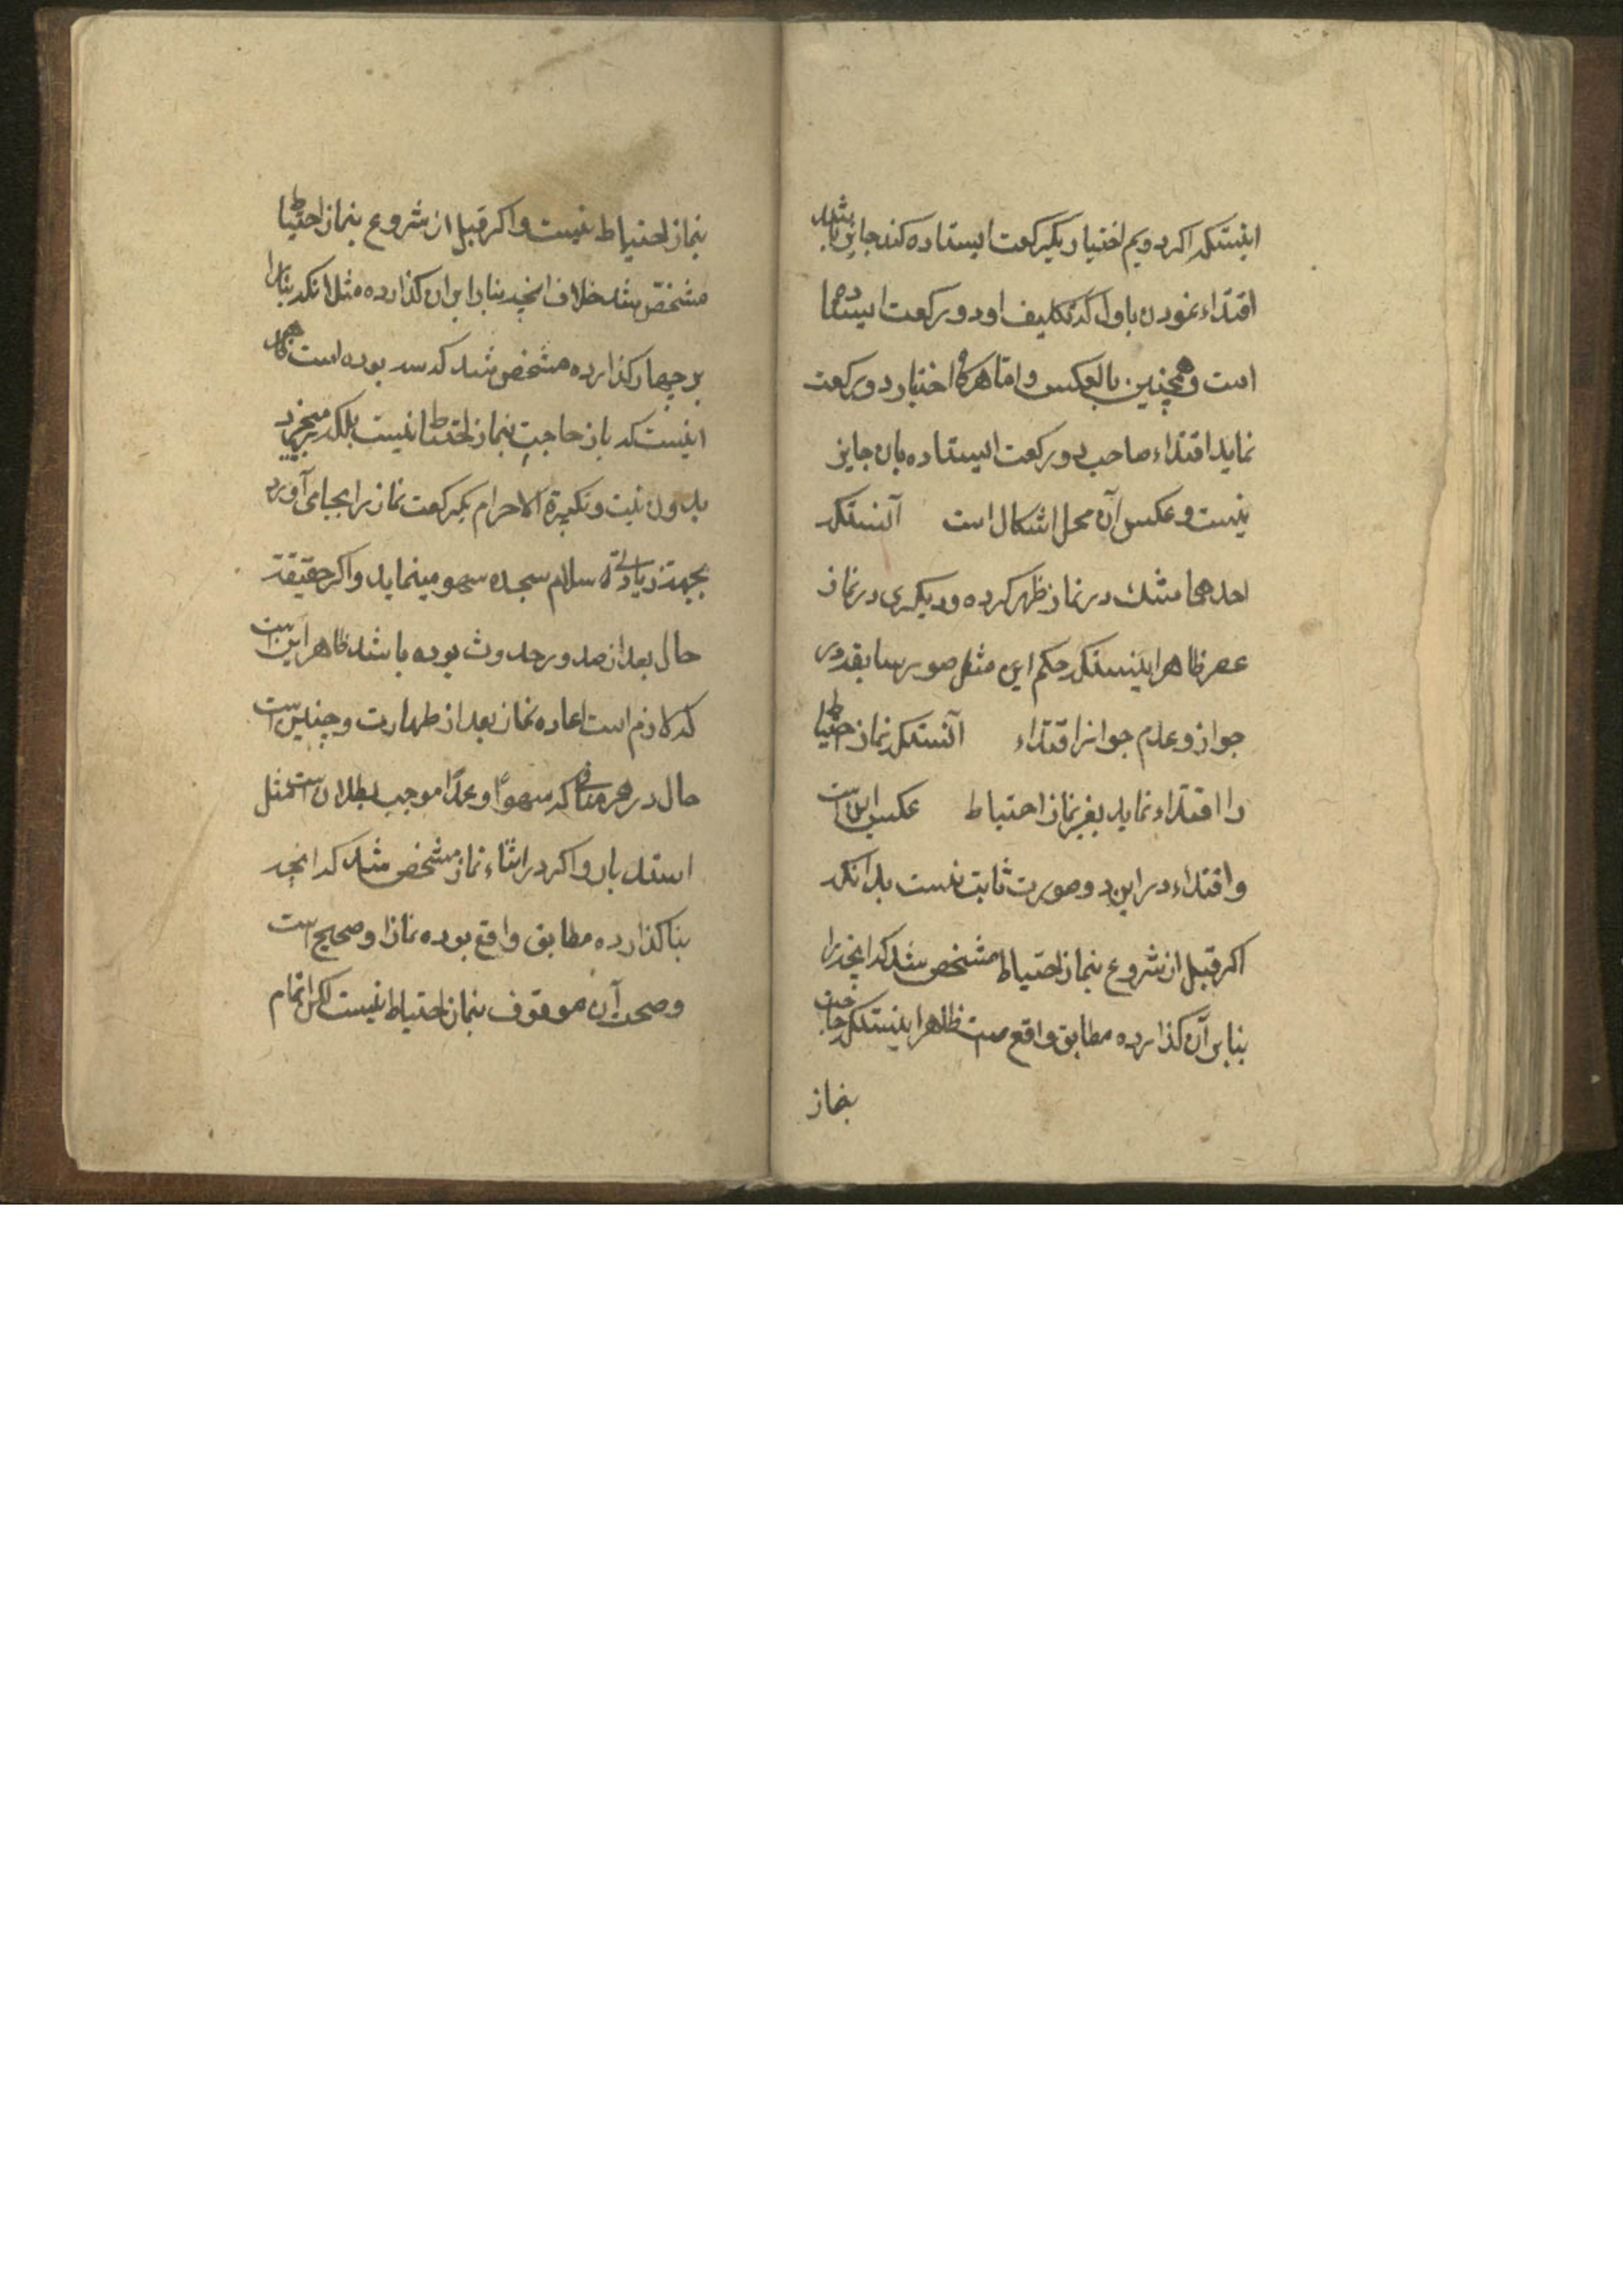 اینستکه اکر دویم اختیار یکرکعت ایستاده کند جایز باشد
اقتداء نمودن باول که تکلیف او دو رکعت ایستاده
است و همچنین بالعکس و اما هرکاه اختیار دو رکعت
نماید اقتداء صاحب دو رکعت ایستاده بان جایز
نیست و عکس آن محل اشکال است آنستکه
احدهما شک در نماز ظهر کرده و دیکری در نماز
عصر ظاهرا اینستکه حکم این مثل صور سابقه در
جواز و عدم جواز اقتداء آنستکه نماز احتیاط
را اقتداء نماید بغیر نماز احتیاط عکس این است
و اقتداء در این دو صورت ثابت نیست بدانکه
اکر قبل از شروع بنماز احتیاط مشخص شد که انچه را
بنا بر آن کذارده مطابق واقع است ظاهرا اینستکه حاجت
بنماز
بنماز احتیاط نیست و اکر قبل از شروع بنماز احتیاط
مشخص شد خلاف انچه بنا را بران کذارده مثل انکه بنا را
بر چهار کذارده مشخص شد که سه بوده است
اینست که باز حاجت بنماز احتیاط نیست بلکه
بدون نیت و تکبیرة الاحرام یکرکعت نماز را بجا می آورد
بجهة زیادتی سلام سجده سهو مینماید و اکر حقیقة
حال بعد از صدور حدوث بوده باشد ظاهر این است
که لازم است اعاده نماز بعد از طهارت و چنین است
حال در هر منافی که سهوا و عمدا موجب بطلان است مثل
استدبار و اکر در اثناء نماز مشخص شد که انچه
بنا کذارده مطابق واقع بوده نماز او صحیح است
و صحت آن موقوف بنماز احتیاط نیست لکن اتمام